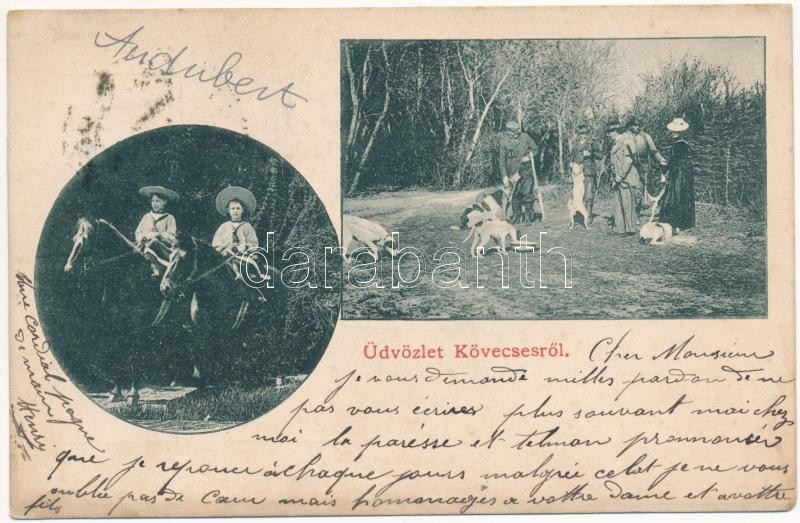 Audubert
Üdvözlet Kövecsesről.
Cher Monsieur
je vous demande milles pardon de ne
pas vous écrires plus souvant mai chez
moi la parésse et telman prononsér
que je repouce à chaque jours malgrée celat je ne vous
oublie pas de Cœur mais homonages a vottre Dame et a vottre
fils
Une cordial pogne
de main
Henry
darabanth